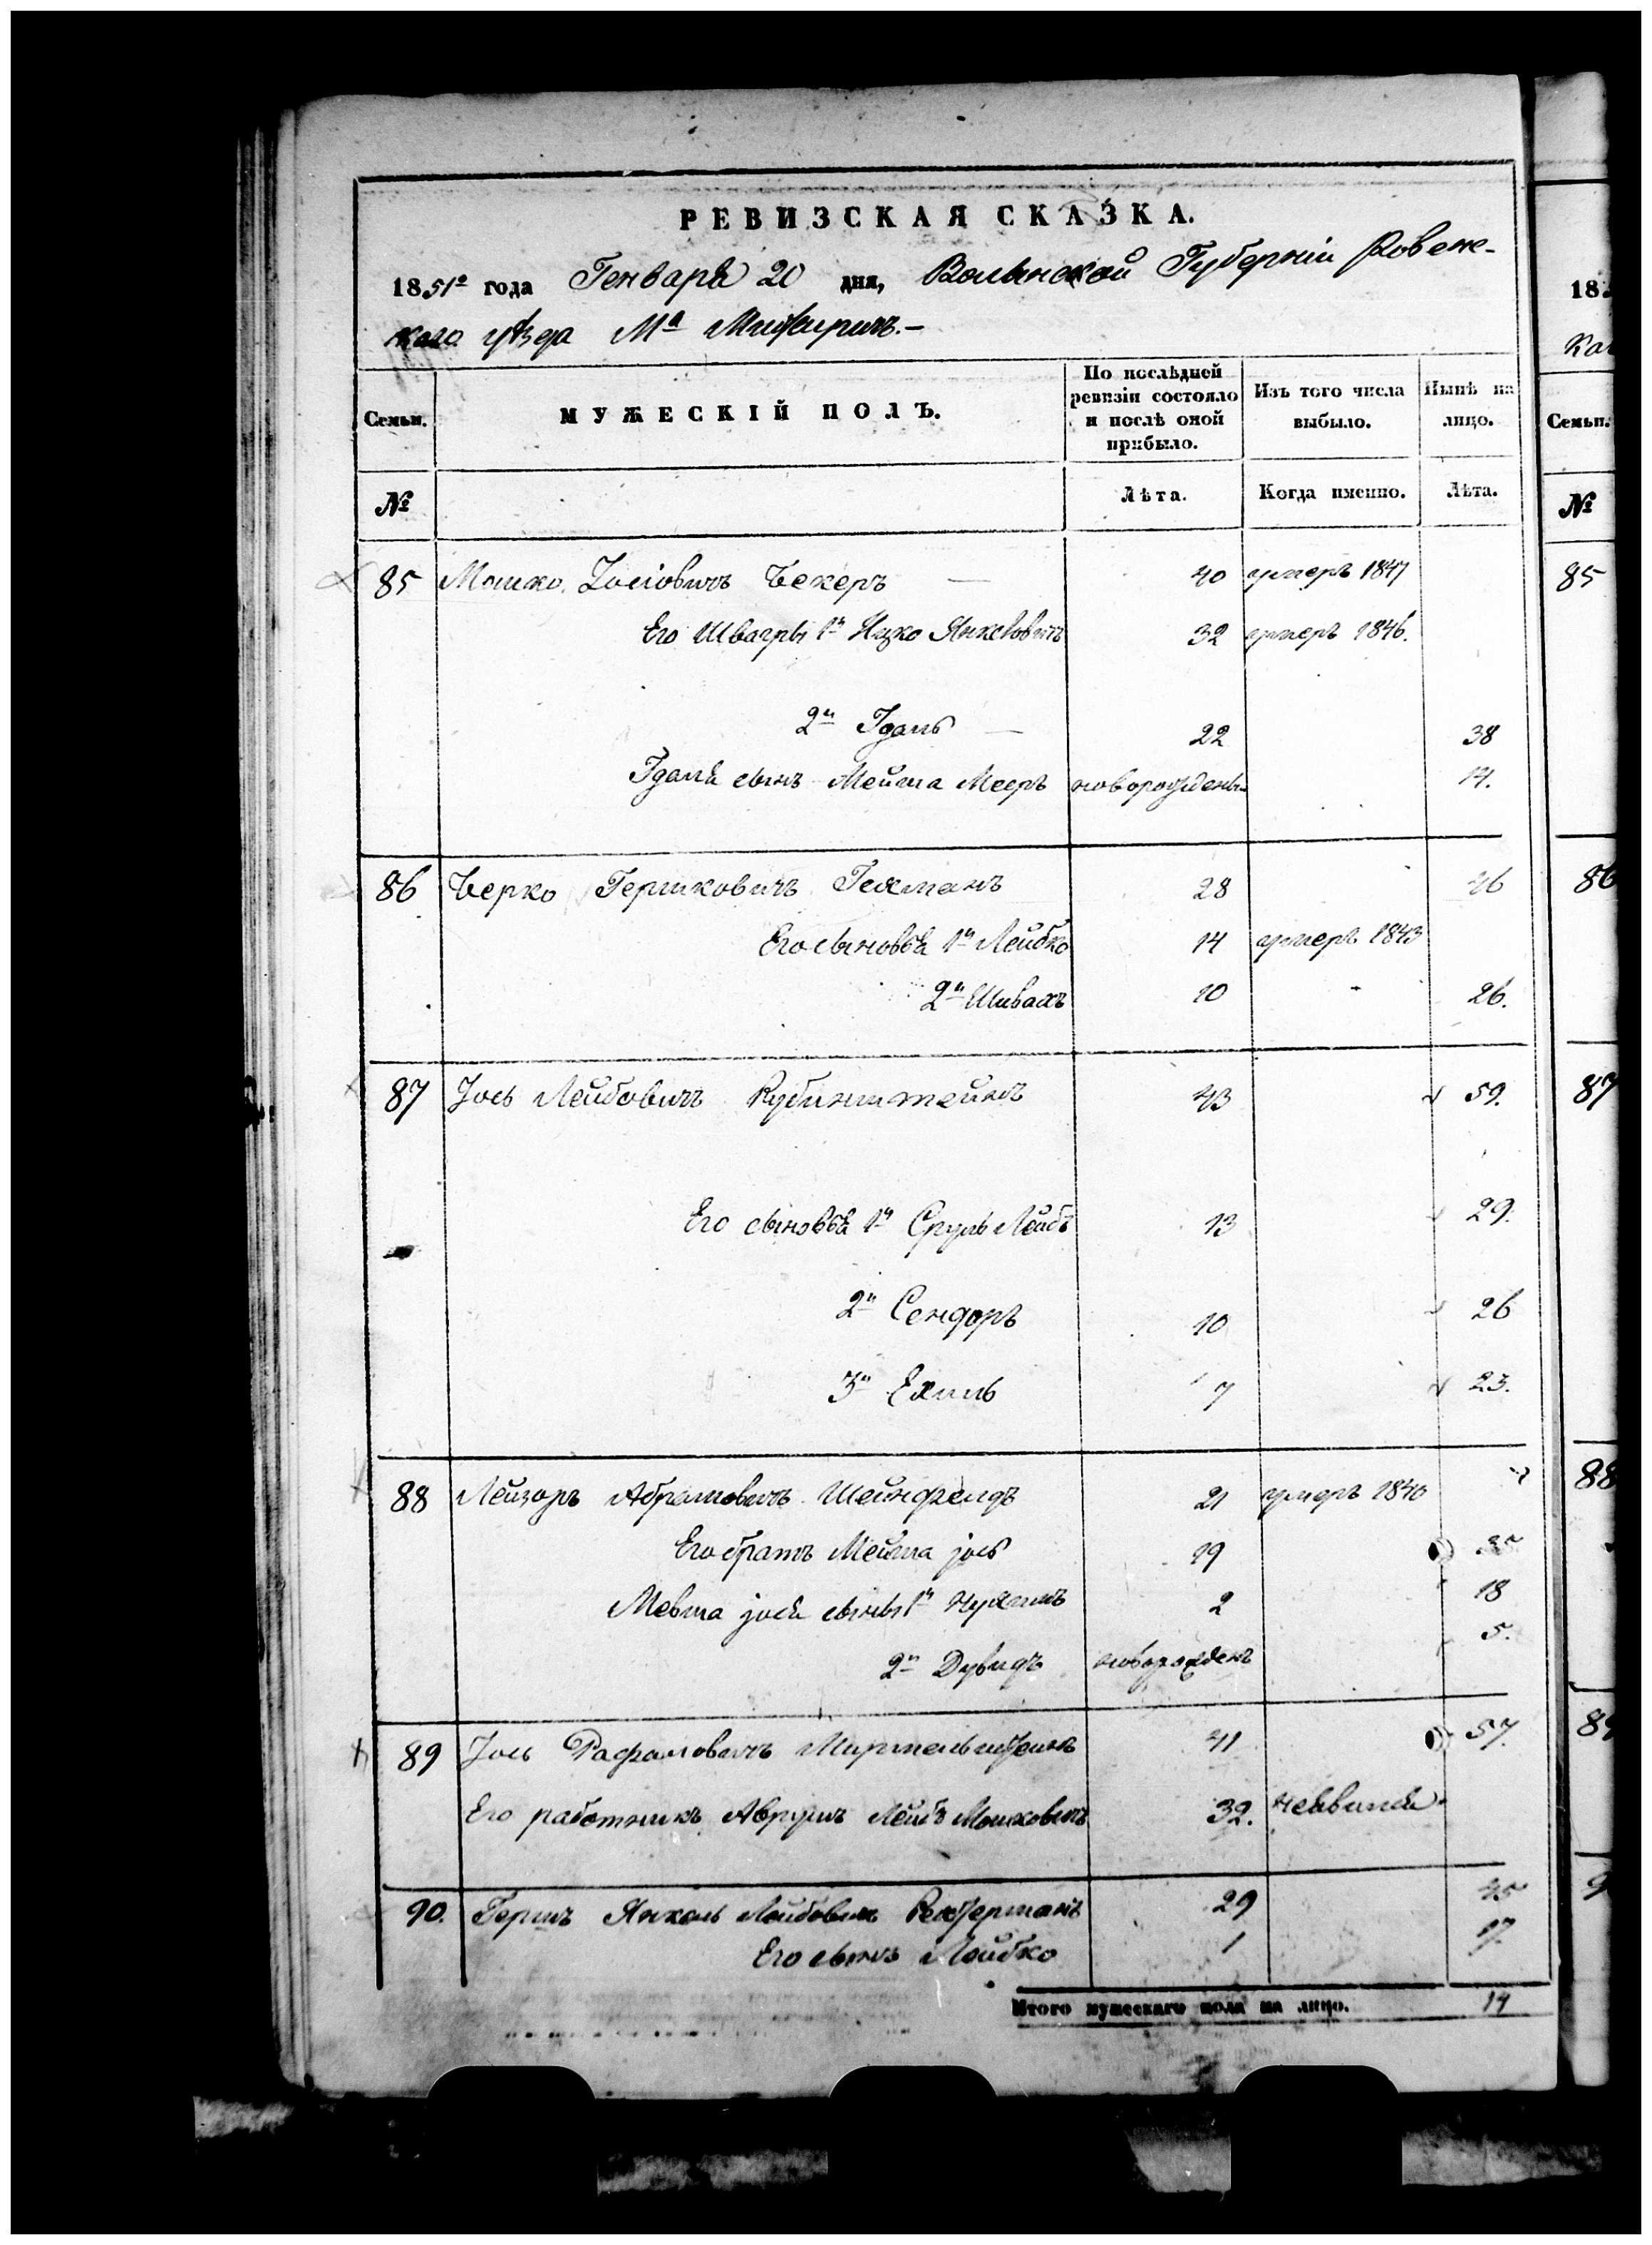 РЕВИЗСКАЯ СКАЗКА.
1851го года Генваря 20 дня, Волынской Губерніи Ровенс-
кого уѣзда Ма Межиричъ.-
Семьи. МУЖЕСКІЙ ПОЛЪ. По послѣдней ревизіи состояло и послѣ оной прибыло. Изъ того числа выбыло. Нынѣ на лицо.
№ Лѣта. Когда именно. Лѣта.
85 Мошко Іосіовичъ Бекеръ — 40 умеръ 1847
Его Швагры 1й Ицко Янкеловичъ 32 умеръ 1846.
2й Гдаль — 22 38
Гдаля сынъ Мейша Мееръ новорожденъ 14.
86 Берко Гершковичъ Гехманъ 28 46
Его сыновья 1й Лейбко 14 умеръ 1843
2й Шивахъ 10 26.
87 Іось Лейбовичъ Рубинштейнъ 43 59.
Его сыновья 1й Сруль Лейбъ 13 29.
2й Сендоръ 10 26
3й Ехиль 7 23.
88 Лейзоръ Абрамовичъ Шейнфелдъ 21 умеръ 1840
Его братъ Мейша іось 19 35
Мевша іося сыны 1й Нухимъ 2 18
2й Дувидъ новорожденъ 5.
89 Іось Рафаловичъ Миртельштейнъ 41 57.
Его работникъ Аврумъ Лейбъ Мошковичъ 32. неявился
90. Гершъ Янкель Лейбовичъ 29 45
Его сынъ Лейбко 1 17.
Итого мужескаго пола на лицо. 14
18
Ка
Семьи.
№
85
86
87
88